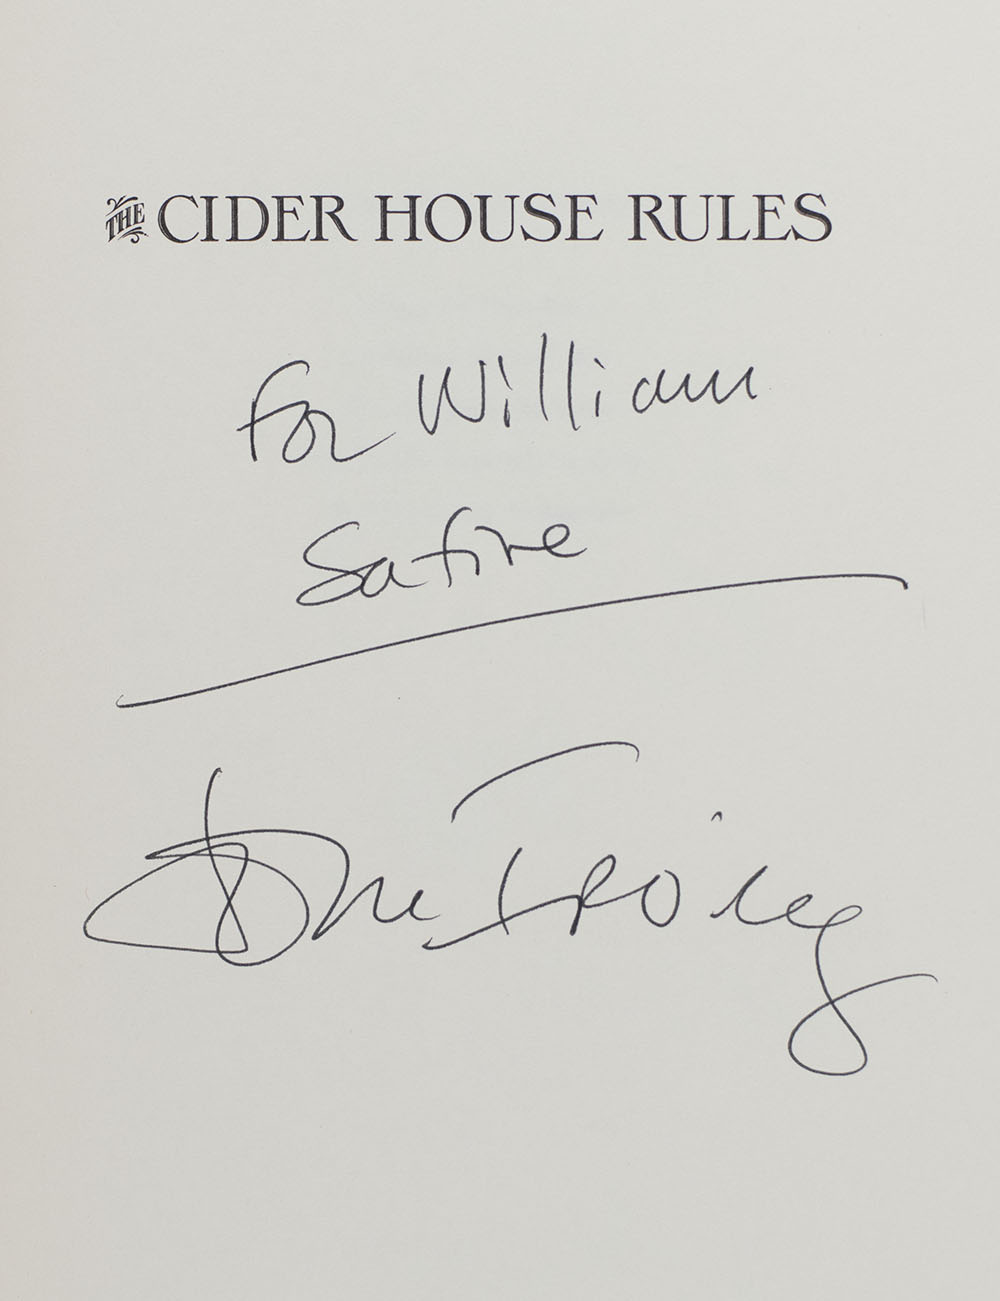 THE CIDER HOUSE RULES
For William
Safire
John Irving